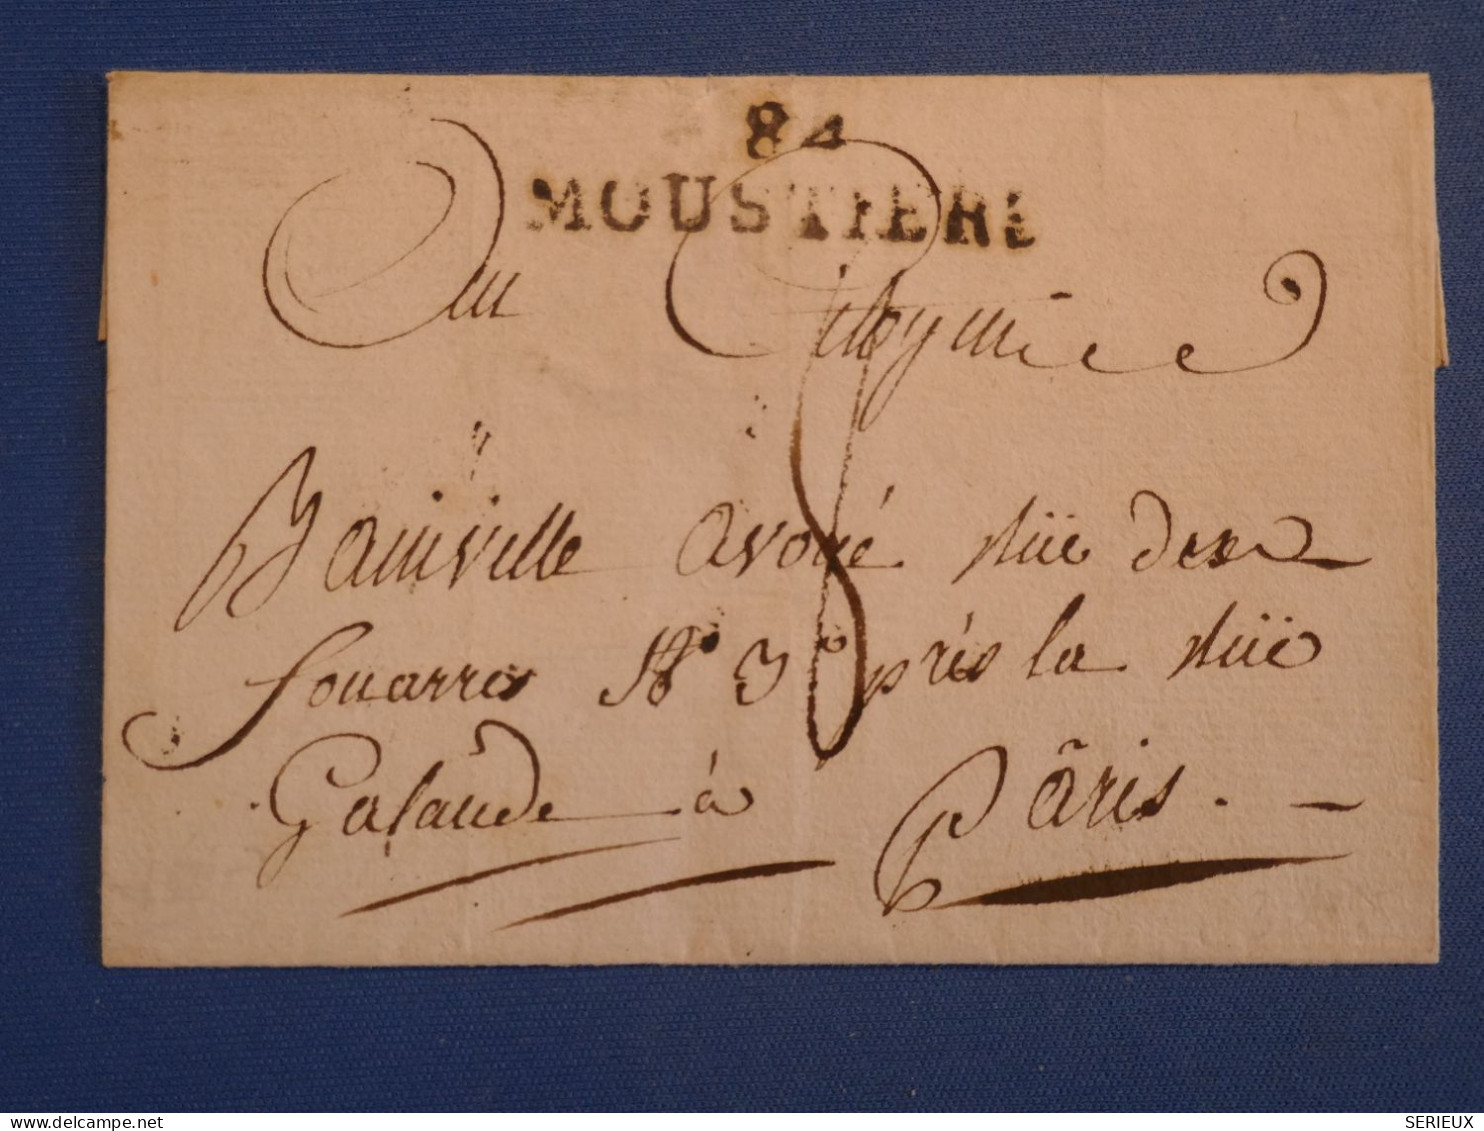 84
MOUSTIERE
Au Citoyen
Bainville avoué Rüe des
fouarres N° 3 près la Rüe
Galande à Pâris.
8
delcampe.net
SERIEUX